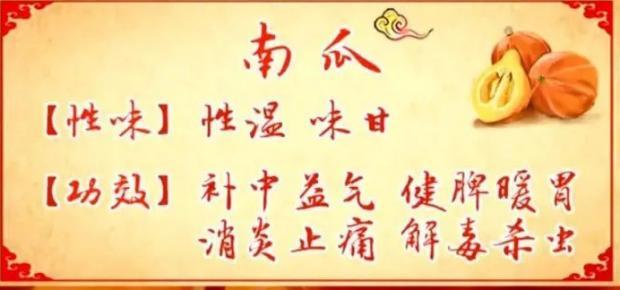 南瓜
【性味】性温 味甘
【功效】补中益气 健脾暖胃
消炎止痛 解毒杀虫